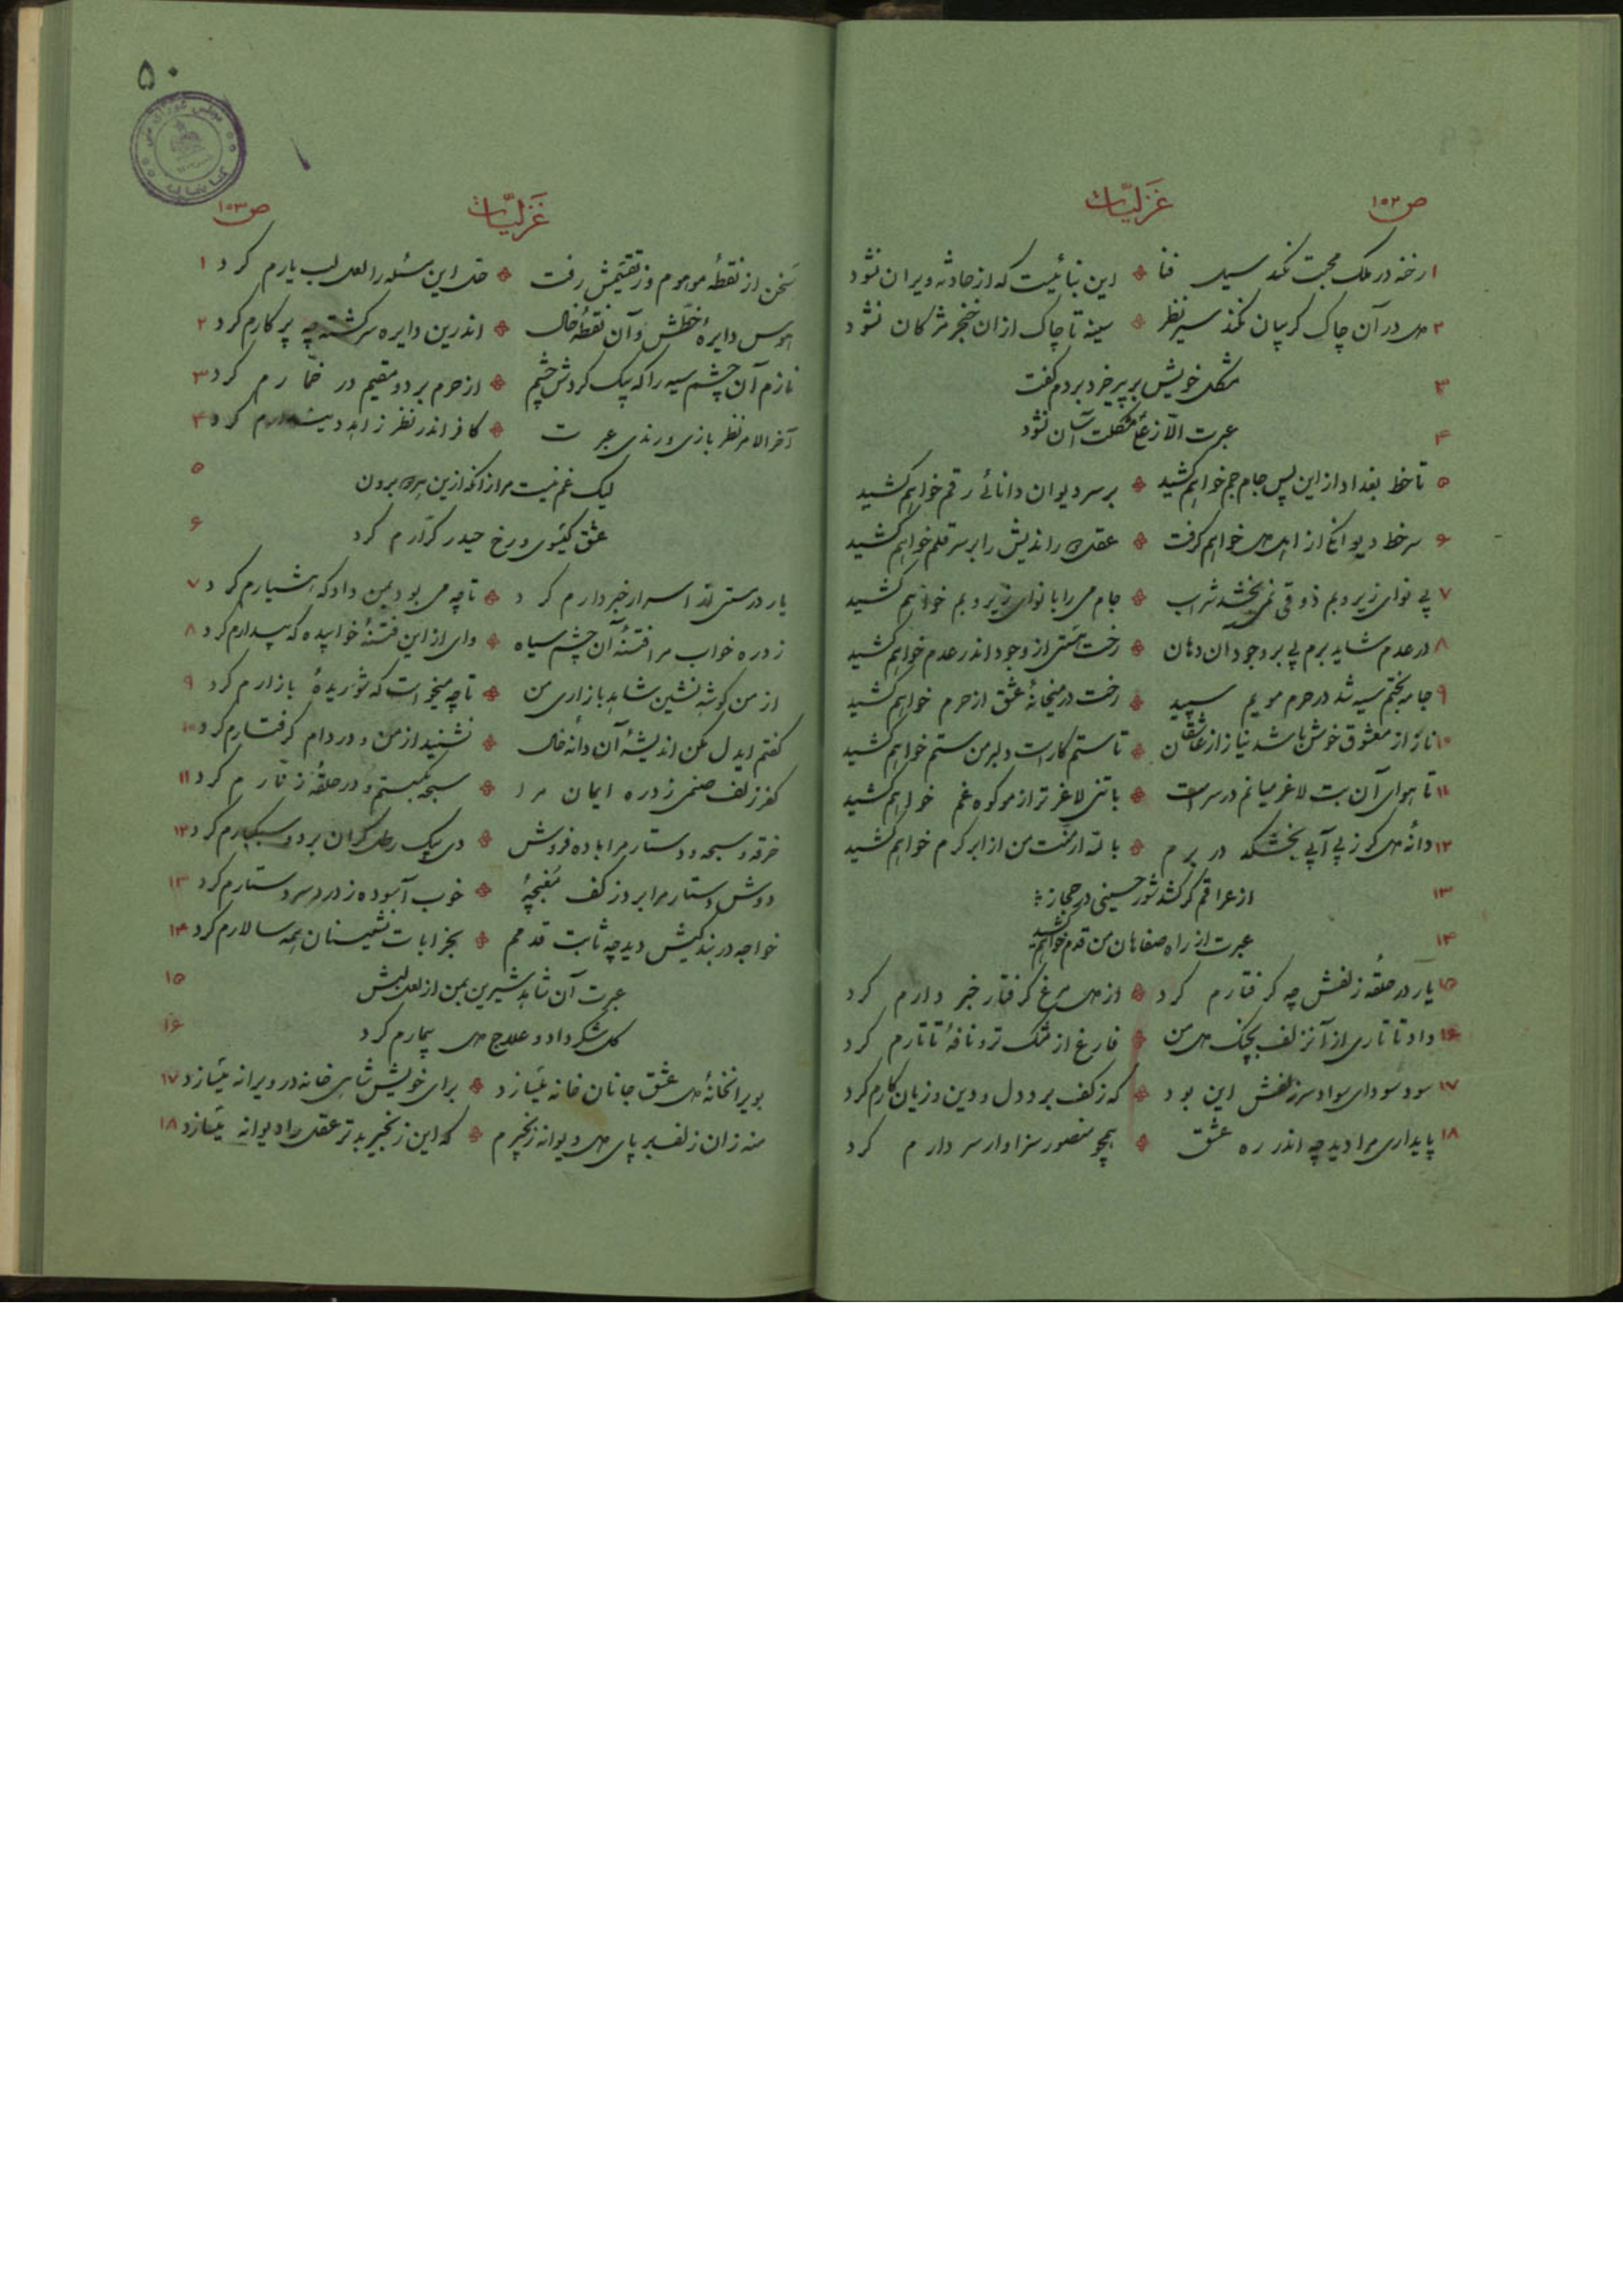 ص ۱۵۲
غَزلیّات
۱ رخنه در ملک محبت نکند سیل فنا ❖ این بنائیست که از حادثه ویران نشود
۲ دل در آن چاک گریبان نکند سیر نظر ❖ سینه تا چاک از ان خنجر مژکان نشود
۳ مشکل خویش بر پیر خرد بردم گفت
۴ عبرت الّا ز مشکلت آسان نشود
۵ تا خط بغداد از این پس جام جم خواهم کشید ❖ بر سر دیوان دانائی رقم خواهم کشید
۶ سرخط دیوانکی از اهل دل خواهم کرفت ❖ عقل را بر سر قلم خواهم کشید
۷ بی نوای زیر و بم ذوقی نمی بخشد شراب ❖ جام می را با نوای زیر و بم خواهم کشید
۸ در عدم شاید برم پی بر وجود ان دهان ❖ رخت هستی از وجود اندر عدم خواهم کشید
۹ جامه بختم سیه شد در حرم مویم سپید ❖ رخت در میخانهٔ عشق از حرم خواهم کشید
۱۰ ناز از معشوق خوش باشد نیاز از عاشقان ❖ تا ستم کار است دلبر من ستم خواهم کشید
۱۱ تا هوای آن بت لاغر میانم در سر است ❖ با تنی لاغر تر از مو کوه غم خواهم کشید
۱۲ دانهٔ دل کر ز بی آبی بخشکد در برم ❖ بالله ار منت من از ابر کرم خواهم کشید
۱۳ از عراقم کر کشد شور حسینی در حجاز
۱۴ عبرت از راه صفاهان من قدم خواهم کشید
۱۵ یار در حلقهٔ زلفش چه کرفتارم کرد ❖ از دل مرغ کرفتار خبر دارم کرد
۱۶ داد تا تاری از آنزلف بچنک دل من ❖ فارغ از مشک تر و نافهٔ تاتارم کرد
۱۷ سود سودای سواد سر زلفش این بود ❖ که ز کف برد دل و دین و زیان کارم کرد
۱۸ پایداری مرا دید چه اندر ره عشق ❖ همچو منصور سزاوار سر دارم کرد
۵۰
ص ۱۵۳
غَزلیّات
سَخن از نقطهٔ موهوم وز تقسیمش رفت ❖ حل این مسئله را لعل لب یارم کرد ۱
هوس دایرهٔ خطّش و آن نقطهٔ خال ❖ اندرین دایره سرکشته چه پرکارم کرد ۲
نازم آن چشم سیه را که بیک کردش چشم ❖ از حرم برد و مقیم در خمّارم کرد ۳
آخر الامر نظر بازی و رندی عبرت ❖ کافر اندر نظر زاهد کرد ۴
لیک غم نیست مرا زانکه ازین برون ۵
عشق کیسوی و رخ حیدر کرّارم کرد ۶
یار در مستی اسرار خبردارم کرد ❖ تا چه می بود بمن داد که هشیارم کرد ۷
زد ره خواب مرا فتنهٔ آن چشم سیاه ❖ وای از این فتنهٔ خوابیده که بیدارم کرد ۸
از من کوشه نشین شاهد بازاری من ❖ تا چه میخواست که شوریدهٔ بازارم کرد ۹
کفتم ایدل مکن اندیشهٔ آن دانه خال ❖ نشنید از من و در دام کرفتارم کرد ۱۰
کفر زلف صنمی زد ره ایمان مرا ❖ سبحه بکسستم و در حلقهٔ زنّارم کرد ۱۱
خرقه و سبحه و دستار مرا باده فروش ❖ دی بیک رطل کران برد و سبکبارم کرد ۱۲
دوش دستار مرا برد ز کف مُغبچهٔ ❖ خوب آسوده ز درد سر دستارم کرد ۱۳
خواجه در بندکیش دید چه ثابت قدمم ❖ بخرابات نشینان همه سالارم کرد ۱۴
عبرت آن شاهد شیرین بمن از لعل لبش ۱۵
کل شکر داد و علاج دل بیمارم کرد ۱۶
بویرانخانهٔ دل عشق جانان خانه میسازد ❖ برای خویش شاهی خانه در ویرانه میسازد ۱۷
منه زان زلف بر پای دل دیوانه زنجیرم ❖ که این زنجیر بدتر عقل را دیوانه میسازد ۱۸